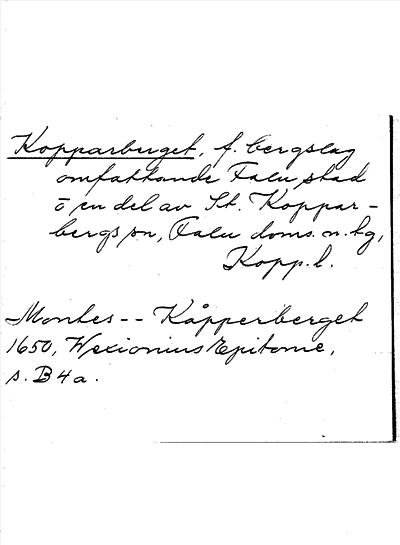 Kopparberget, f. bergslag
omfattande Falu stad
o en del av St. Koppar-
bergs sn, Falu doms. n. tg,
Kopp. l.
Montes -- Kåpperberget
1650, Wexionius Epitome,
s. B4a.